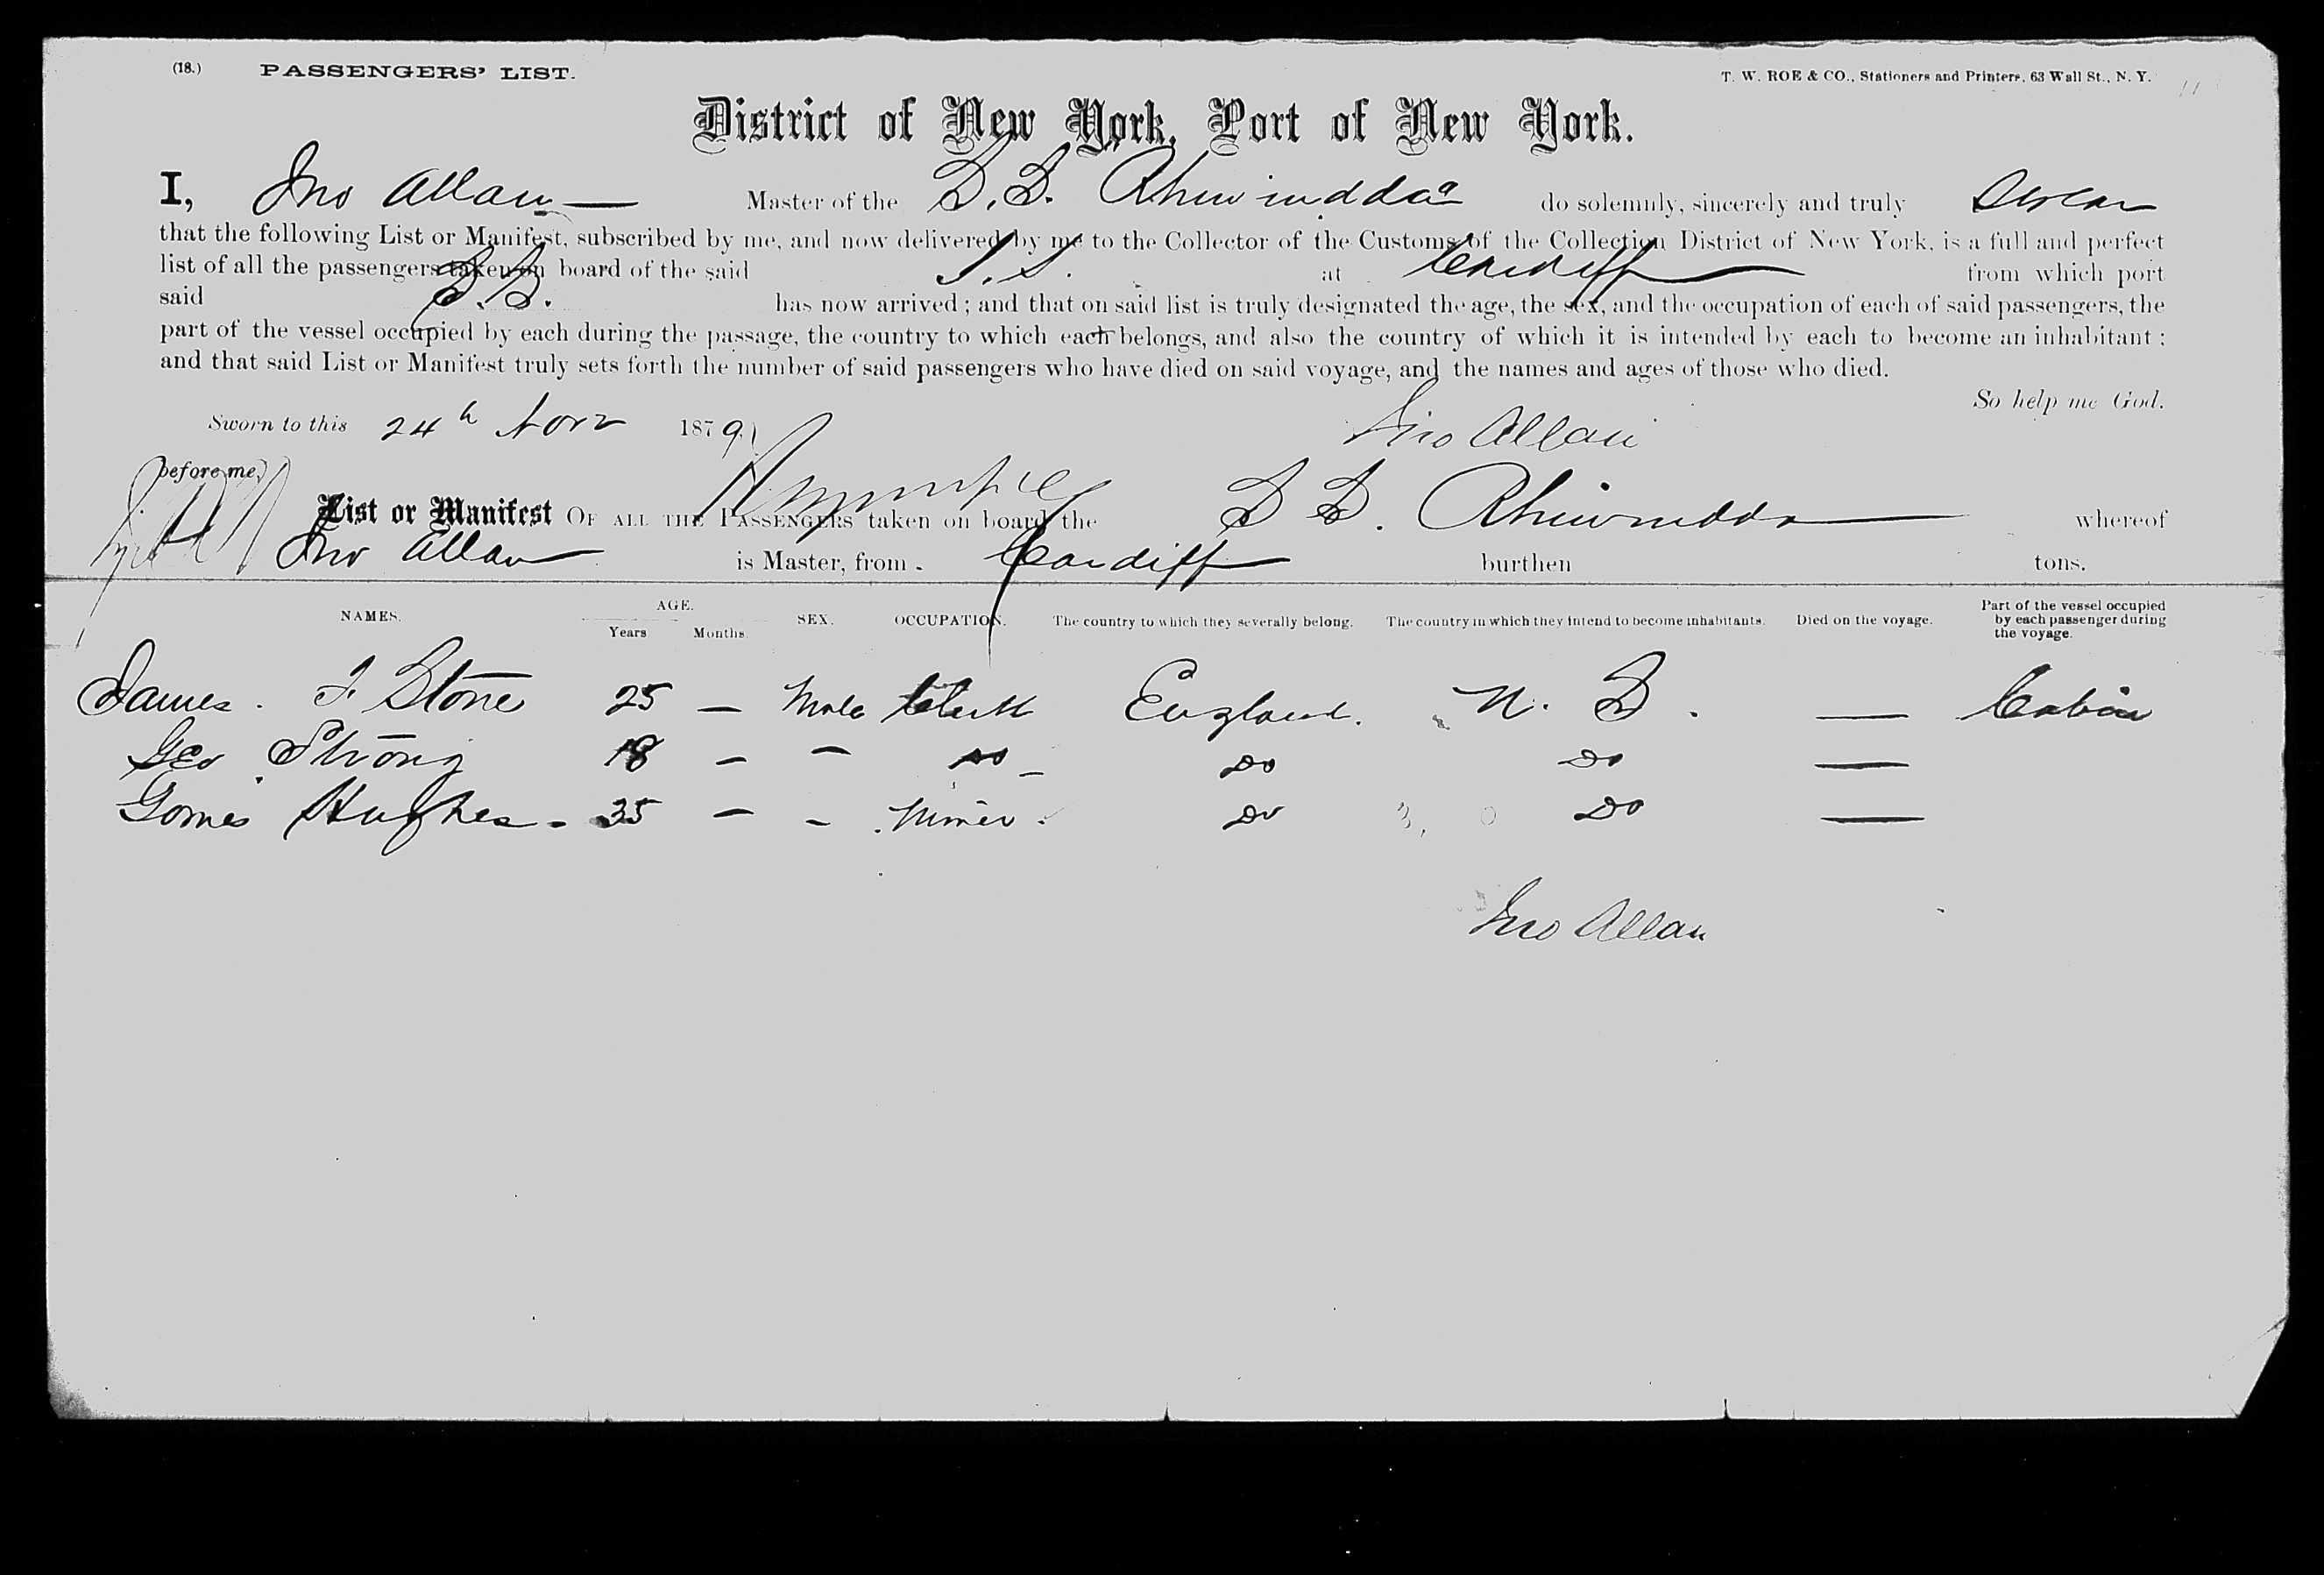 (18.) PASSENGERS' LIST. T. W. ROE & CO., Stationers and Printers, 63 Wall St., N. Y.
District of New York, Port of New York.
I, Jno Allan Master of the S.S. do solemnly, sincerely and truly swear
that the following List or Manifest, subscribed by me, and now delivered by me to the Collector of the Customs of the Collection District of New York, is a full and perfect
list of all the passengers taken on board of the said S.S. at Cardiff from which port
said S.S. has now arrived; and that on said list is truly designated the age, the sex, and the occupation of each of said passengers, the
part of the vessel occupied by each during the passage, the country to which each belongs, and also the country of which it is intended by each to become an inhabitant;
and that said List or Manifest truly sets forth the number of said passengers who have died on said voyage, and the names and ages of those who died.
So help me God.
Sworn to this 24th Novr 1879 Jno Allan
before me,
List or Manifest OF ALL THE PASSENGERS taken on board the S S. whereof
Jno Allan is Master, from Cardiff burthen tons.
NAMES. AGE. Years Months. SEX. OCCUPATION. The country to which they severally belong. The country in which they intend to become inhabitants. Died on the voyage. Part of the vessel occupied by each passenger during the voyage.
James. F Stone 25 — Male Clerk England. U. S. — Cabin
Geo Strong 18 — — Do — Do Do —
James Hughes - 35 — — Miner. Do Do —
Jno Allan